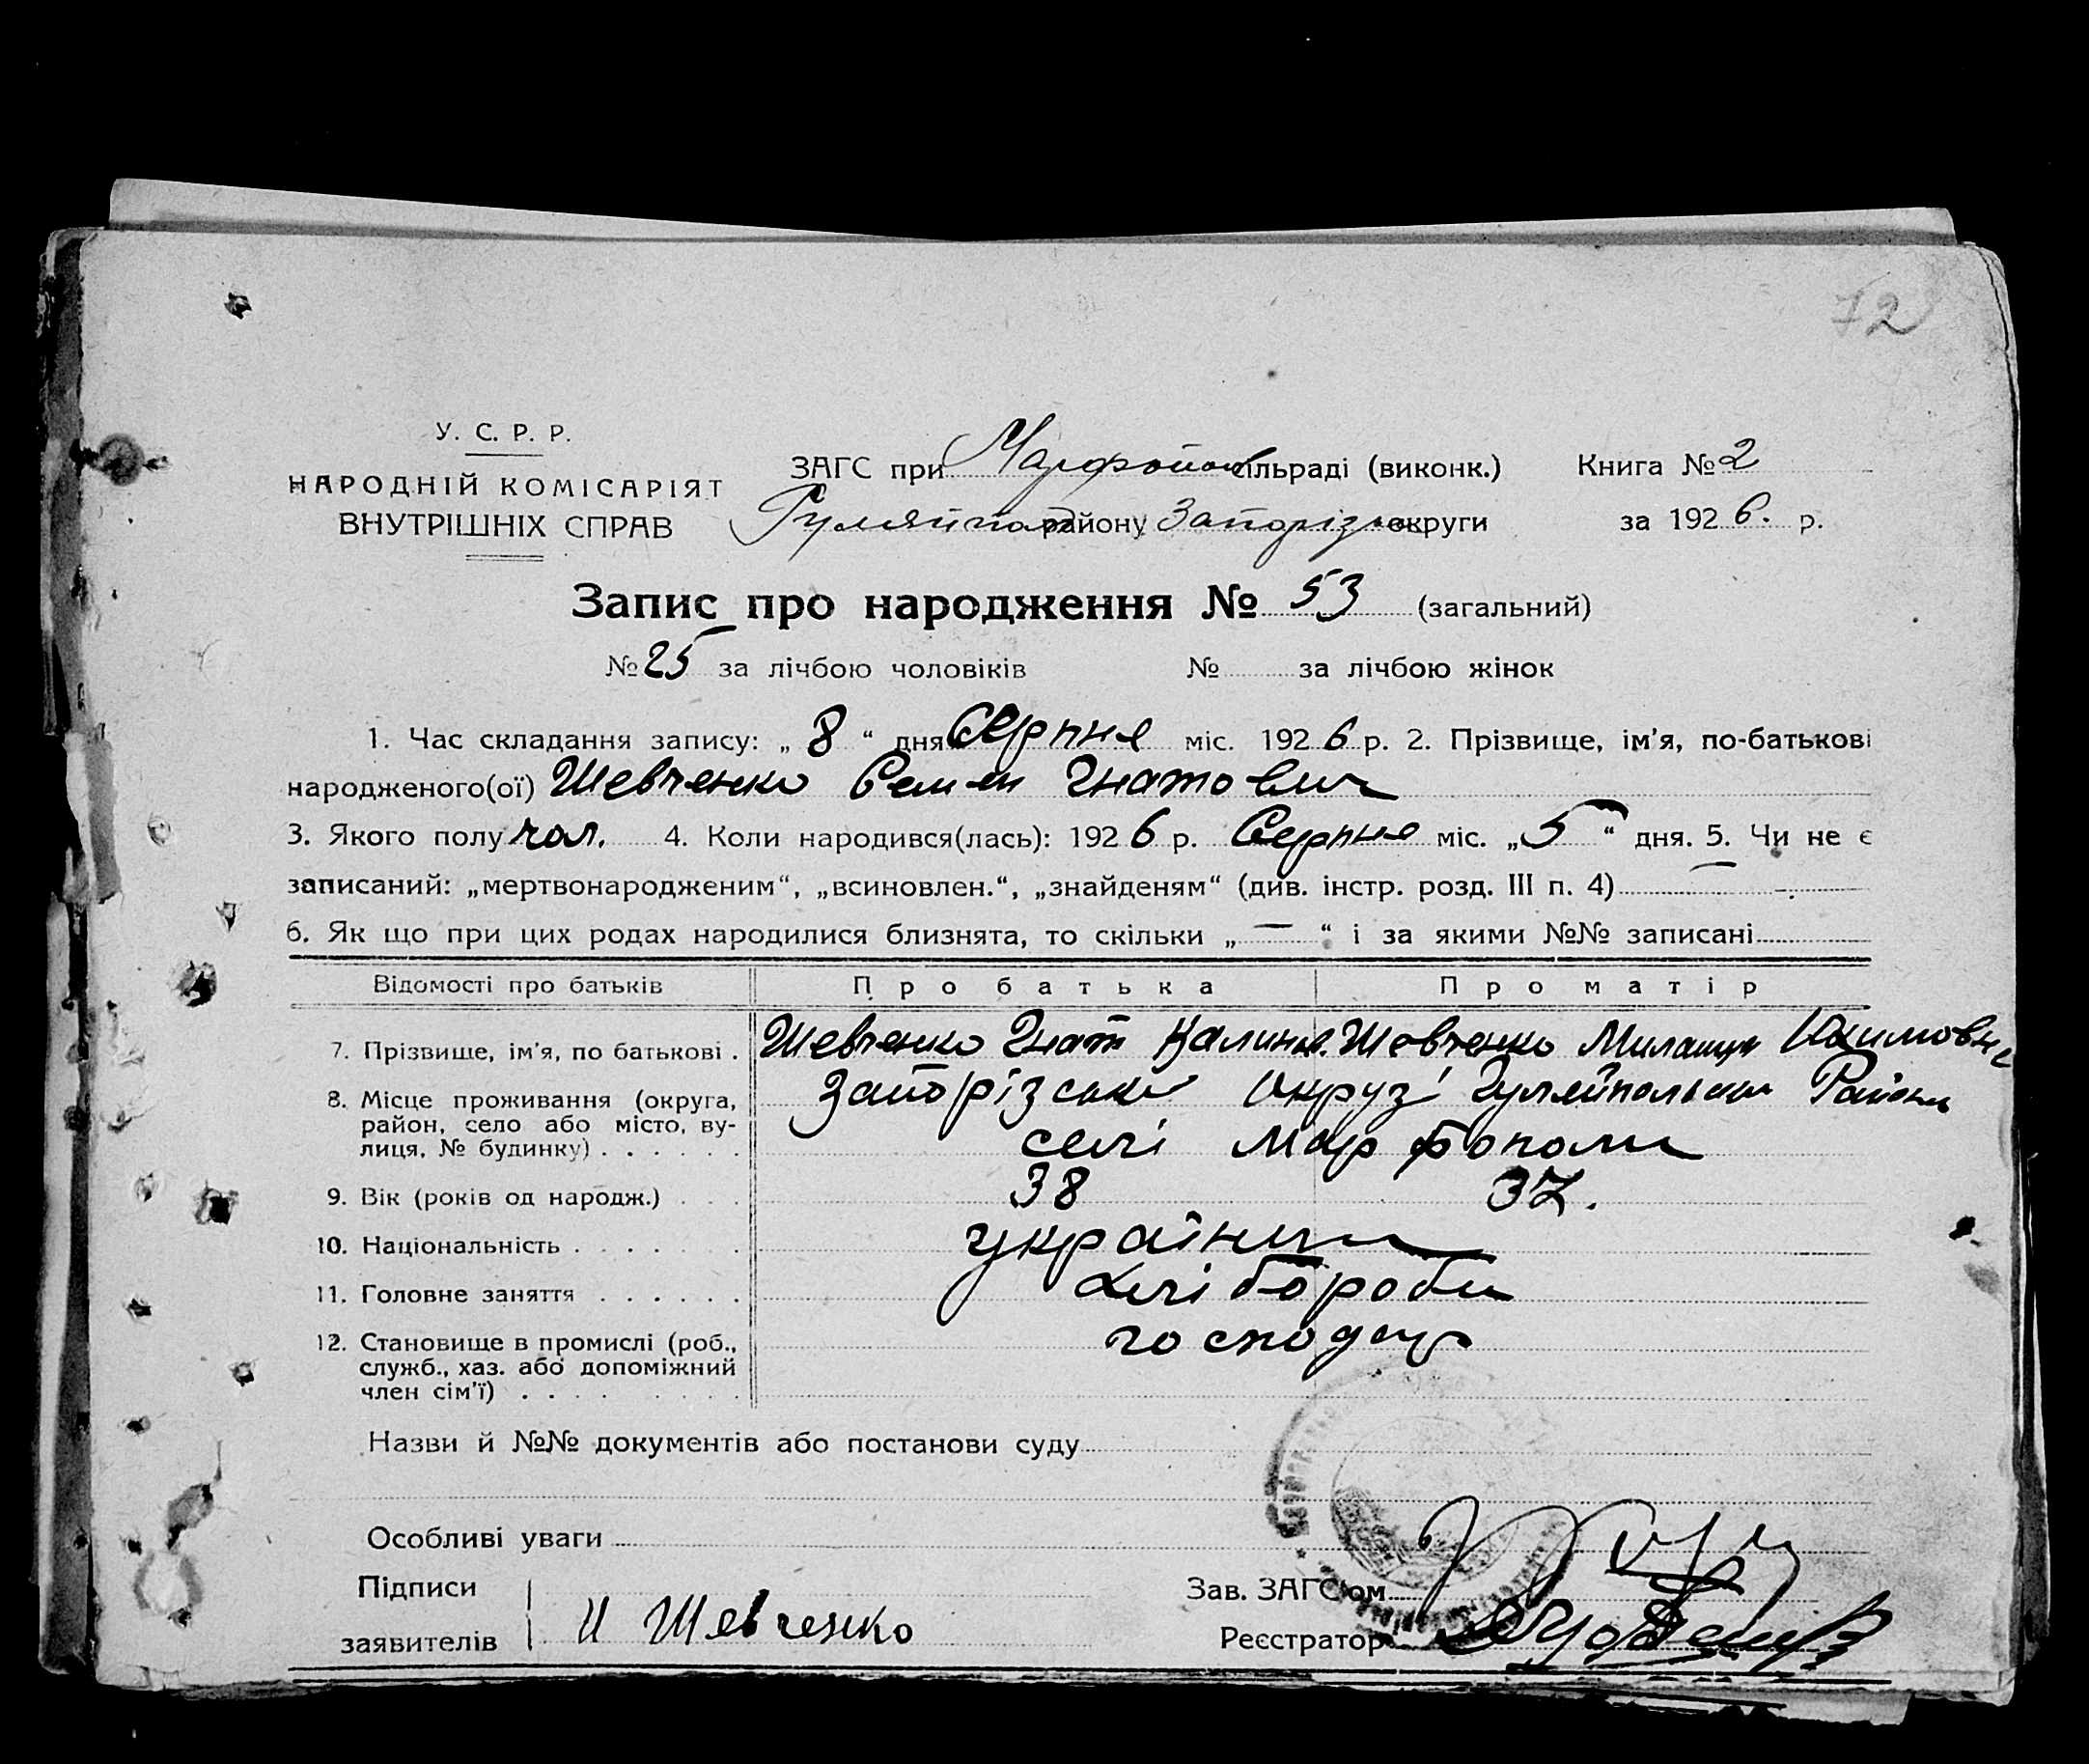 72
У. С. Р. Р.
НАРОДНІЙ КОМІСАРІЯТ
ВНУТРІШНІХ СПРАВ
ЗАГС при Марфопол сільраді (виконк.) Книга № 2
Гуляйпол району Запорізьк округи за 1926. р.
Запис про народження № 53 (загальний)
№ 25 за лічбою чоловіків № за лічбою жінок
1. Час складання запису: „ 8 “ дня Серпня міс. 1926 р. 2. Прізвище, ім'я, по-батькові
народженого(ої) Шевченко Семен Гнатович
3. Якого полу чол. 4. Коли народився(лась): 1926 р. Серпня міс. „ 5 “ дня. 5. Чи не є
записаний: „мертвонародженим“, „всиновлен.“, „знайденям“ (див. інстр. розд. III п. 4) —
6. Як що при цих родах народилися близнята, то скільки „ — “ і за якими №№ записані
Відомості про батьків Про батька Про матір
7. Прізвище, ім'я, по батькові . Шевченко Гнат Калин. Шевченко Якимовна
8. Місце проживання (округа, Запорізськи Округі Гуляйпольськи Район
район, село або місто, ву-
лиця, № будинку) . . . . . . селі Марфополи
9. Вік (років од народж.) . . . 38 37.
10. Національність . . . . . . . українци
11. Головне заняття . . . . . . хліборобы
12. Становище в промислі (роб., господар
служб., хаз. або допоміжний
член сім'ї) . . . . . . . . .
Назви й №№ документів або постанови суду
Особливі уваги
Підписи
Зав. ЗАГС'ом
заявителів И Шевченко
Реєстратор